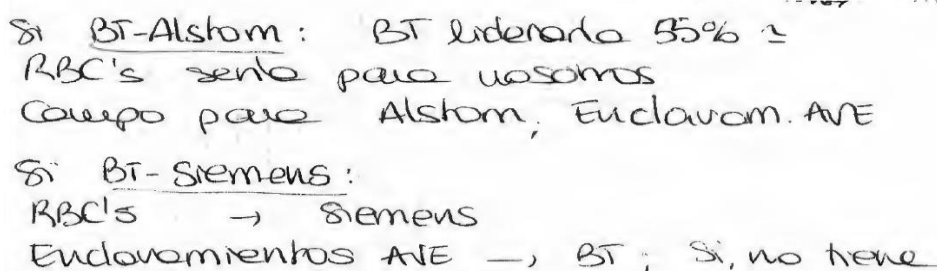 Si BT-Alstom: BT lideraría 55% ≃
RBC's sería para nosotros
Campo para Alstom; Enclavam. AVE
Si BT-Siemens:
RBC's → Siemens
Enclavamientos AVE → BT; Si, no tiene